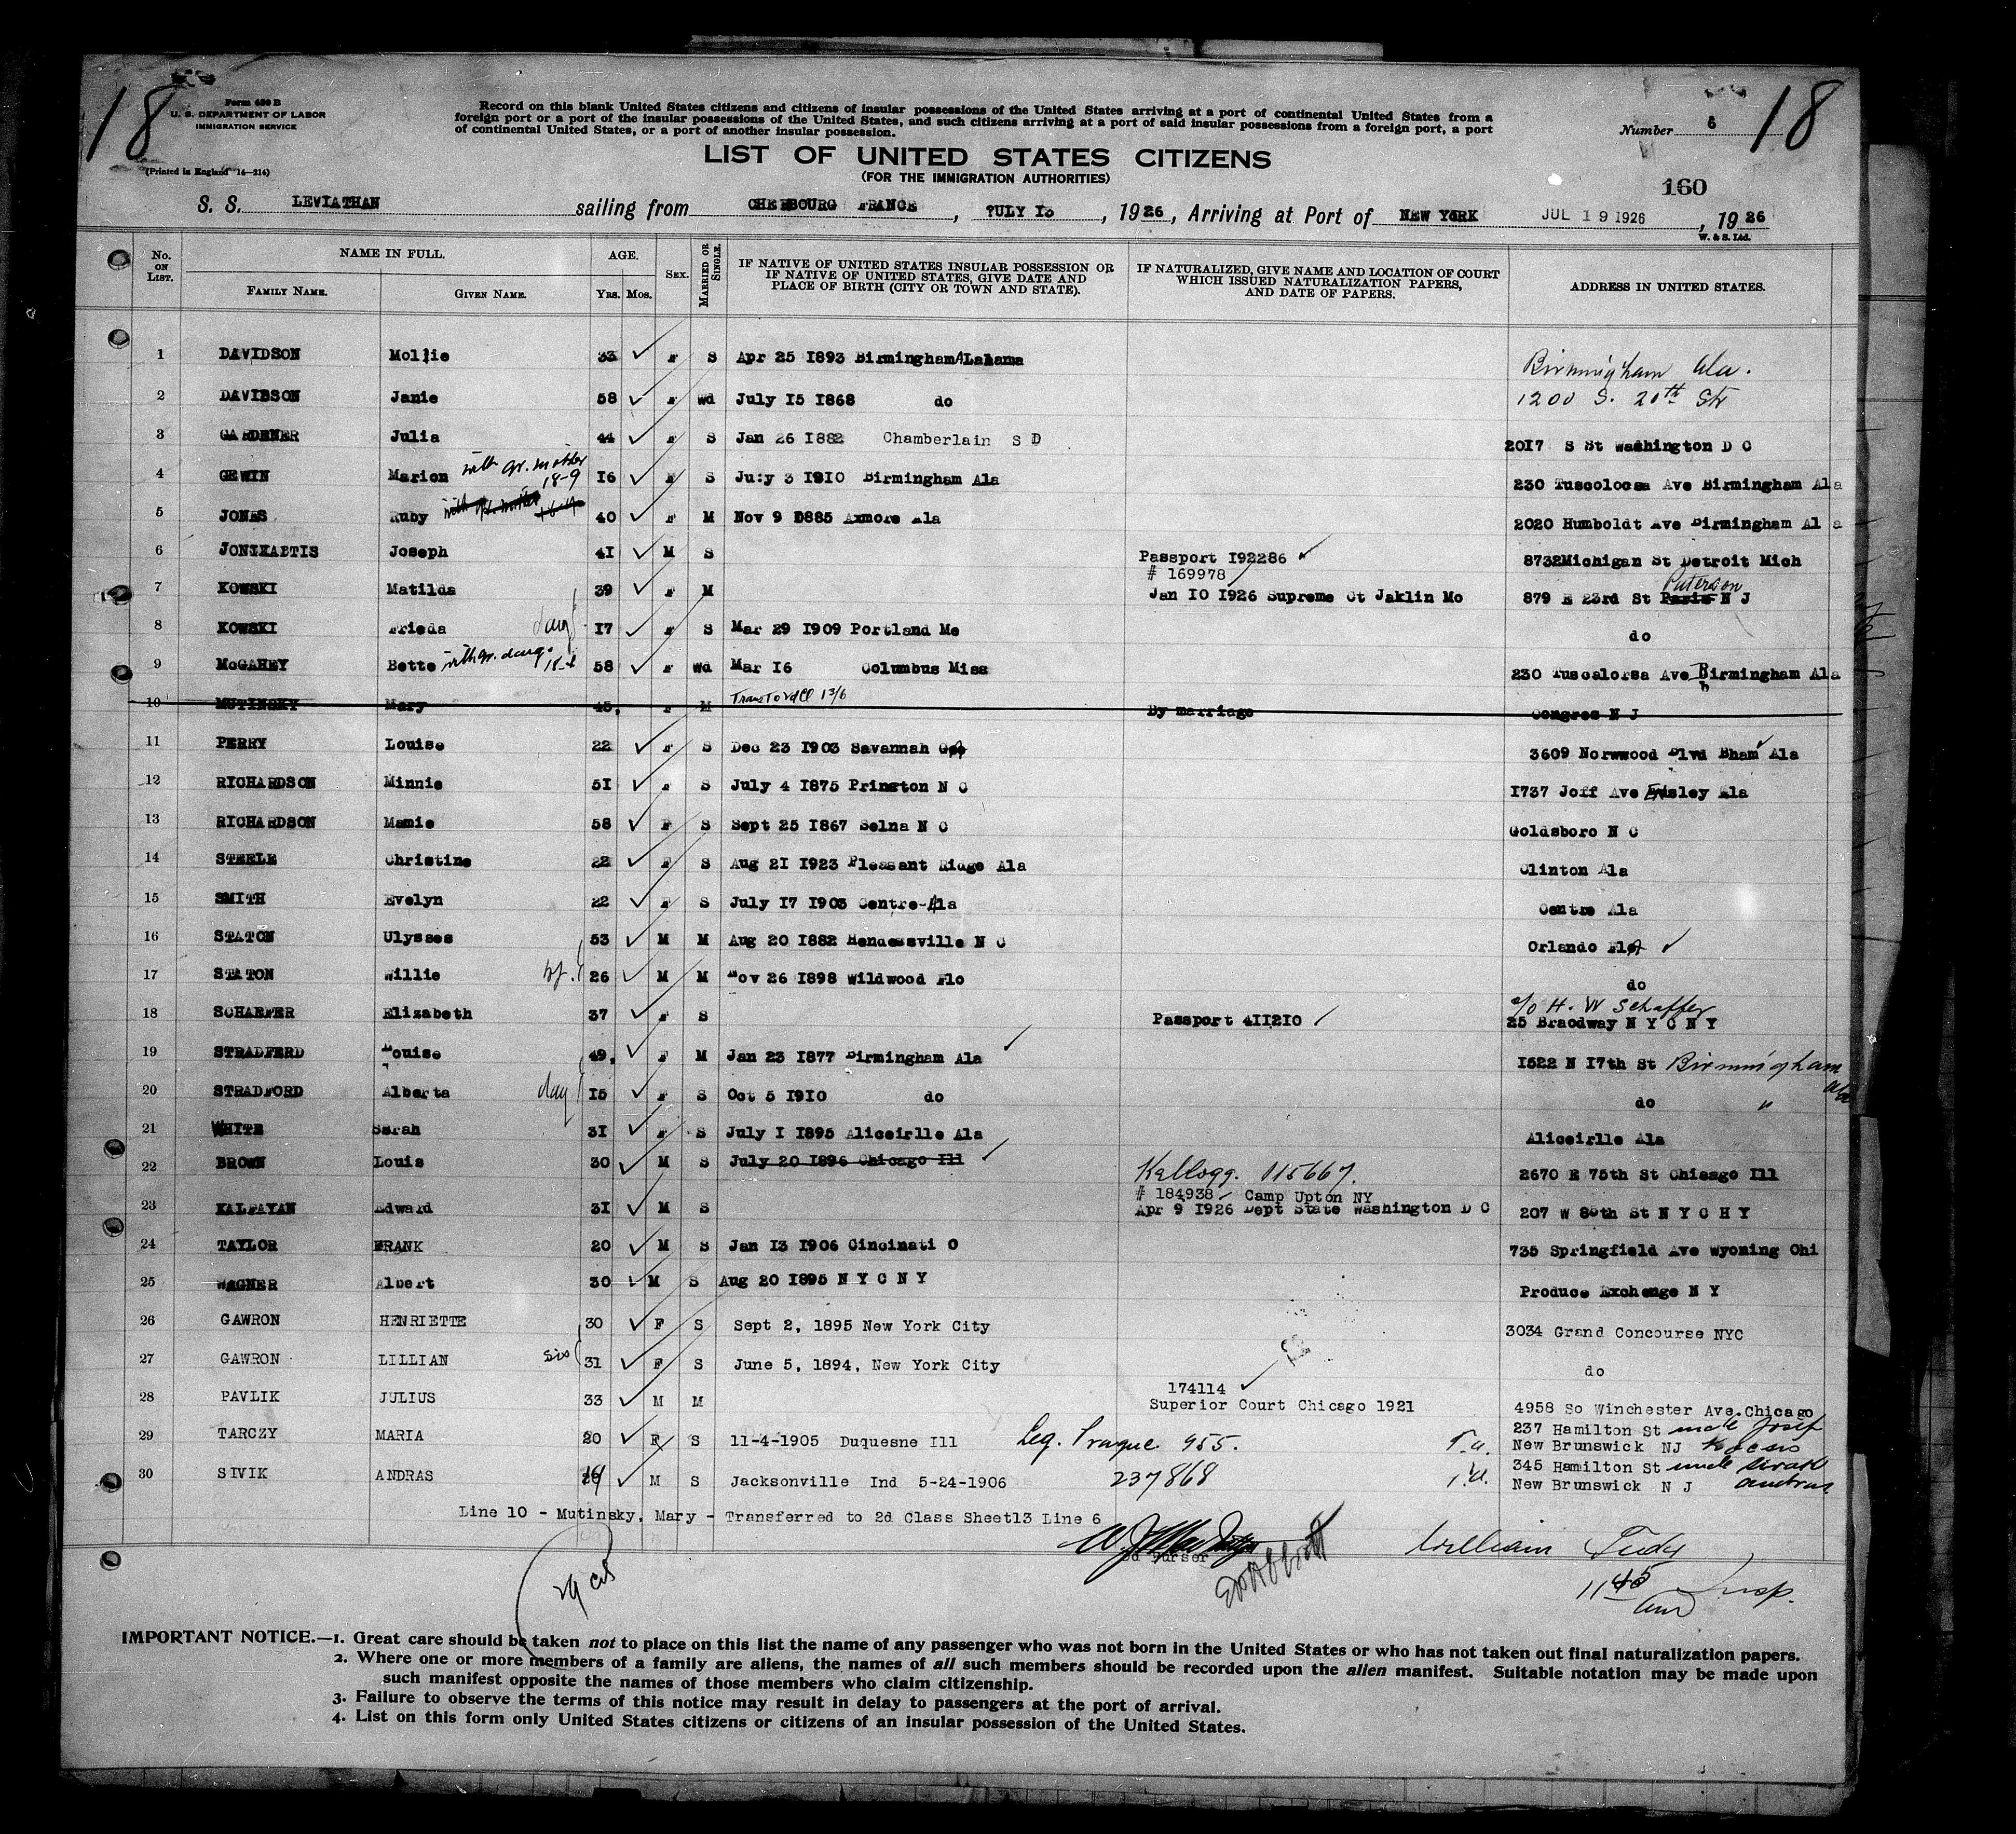 18
Form 430 B
U. S. DEPARTMENT OF LABOR
IMMIGRATION SERVICE
(Printed in England 14—214)
Record on this blank United States citizens and citizens of insular possessions of the United States arriving at a port of continental United States from a
foreign port or a port of the insular possessions of the United States, and such citizens arriving at a port of said insular possessions from a foreign port, a port
of continental United States, or a port of another insular possession.
Number 6
18
LIST OF UNITED STATES CITIZENS
(FOR THE IMMIGRATION AUTHORITIES)
160
S. S. LEVIATHAN sailing from CHERBOURG FRANCE, JULY 13, 1926, Arriving at Port of NEW YORK JUL 19 1926, 1926
W. & S. Ltd.
No. ON LIST. NAME IN FULL. FAMILY NAME. GIVEN NAME. AGE. Yrs. Mos. SEX. MARRIED OR SINGLE. IF NATIVE OF UNITED STATES INSULAR POSSESSION OR IF NATIVE OF UNITED STATES, GIVE DATE AND PLACE OF BIRTH (CITY OR TOWN AND STATE). IF NATURALIZED, GIVE NAME AND LOCATION OF COURT WHICH ISSUED NATURALIZATION PAPERS, AND DATE OF PAPERS. ADDRESS IN UNITED STATES.
1 DAVIDSON Mollie 33 F S Apr 25 1893 Birmingham Alabama Birmingham Ala.
2 DAVIDSON Janie 58 F Wd July 15 1868 do 1200 S. 20th St
3 GARDENER Julia 44 F S Jan 26 1882 Chamberlain S D 2017 S St Washington D C
4 GEWIN Marion with gr. mother 18-9 16 F S Juty 3 1910 Birmingham Ala 230 Tuscoloosa Ave Birmingham Ala
5 JONES Ruby 40 F M Nov 9 1885 Axmore Ala 2020 Humboldt Ave Birmingham Ala
6 JONIKAETIS Joseph 41 M S Passport 192286 8732 Michigan St Detroit Mich
7 KOWSKI Matilda 39 F M # 169978 Jan 10 1926 Supreme Ct Jaklin Mo 879 E 23rd St Paris Paterson N J
8 KOWSKI Frieda daug 17 F S Mar 29 1909 Portland Me do
9 McGAHEY Bette with gr. daug. 58 F Wd Mar 16 Columbus Miss 230 Tuscalorsa Ave Birmingham Ala
10 MUTINSKY Mary 45, F M Trans To 2d Cl 13/6 By marriage Congres N J
11 PERRY Louise 22 F S Dec 23 1903 Savannah Ga 3609 Norwwood Blvd Bham Ala
12 RICHARDSON Minnie 51 F S July 4 1875 Prington N C 1737 Joff Ave Ensley Ala
13 RICHARDSON Mamie 58 F S Sept 25 1867 Selna N C Goldsboro N C
14 STEELE Christine 22 F S Aug 21 1923 Pleasant Ridge Ala Clinton Ala
15 SMITH Evelyn 22 F S July 17 1903 Centre-Ala Centre Ala
16 STATON Ulysses 53 M M Aug 20 1882 Hendessville N C Orlando Fla
17 STATON Willie wf. 26 M M Nov 26 1898 Wildwood Flo do
18 SCHAEFER Elizabeth 37 F S Passport 411210 c/o H. W Schaffer 25 Braodway N Y C N Y
19 STRADFERD Louise 49, F M Jan 23 1877 Birmingham Ala 1522 N 17th St Birmingham Ala
20 STRADFORD Alberta daug 15 F S Oct 5 1910 do do "
21 WHITE Sarah 31 F S July 1 1895 Aliceirlle Ala Aliceirlle Ala
22 BROWN Louis 30 M S July 20 1896 Chicago Ill Kellogg. 115667. 2670 E 75th St Chicago Ill
23 KALFAYAN Edward 31 M S # 184938 Camp Upton NY Apr 9 1926 Dept State Washington D C 207 W 80th St N Y C H Y
24 TAYLOR FRANK 20 M S Jan 13 1906 Cincinati O 735 Springfield Ave Wyoming Ohi
25 WAGNER Albert 30 M S Aug 20 1895 N Y C N Y Produce Exchange N Y
26 GAWRON HENRIETTE 30 F S Sept 2, 1895 New York City 3034 Grand Concourse NYC
27 GAWRON LILLIAN sis 31 F S June 5, 1894, New York City do
28 PAVLIK JULIUS 33 M M 174114 Superior Court Chicago 1921 4958 So Winchester Ave.Chicago
29 TARCZY MARIA 20 F S 11-4-1905 Duquesne Ill Leg. Prague 955. 237 Hamilton St uncle Josef New Brunswick NJ
30 SIVIK ANDRAS 19 M S Jacksonville Ind 5-24-1906 237868 345 Hamilton St uncle New Brunswick N J
Line 10 - Mutinsky, Mary - Transferred to 2d Class Sheet13 Line 6
Purser
William Tudy
1145
Insp.
29 cit
IMPORTANT NOTICE.—1. Great care should be taken not to place on this list the name of any passenger who was not born in the United States or who has not taken out final naturalization papers.
2. Where one or more members of a family are aliens, the names of all such members should be recorded upon the alien manifest. Suitable notation may be made upon
such manifest opposite the names of those members who claim citizenship.
3. Failure to observe the terms of this notice may result in delay to passengers at the port of arrival.
4. List on this form only United States citizens or citizens of an insular possession of the United States.